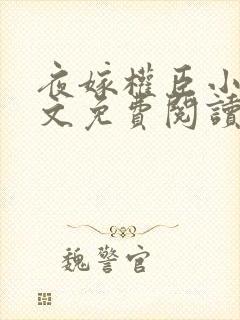 夜嫁權臣小
文免費閱讀
魏警官